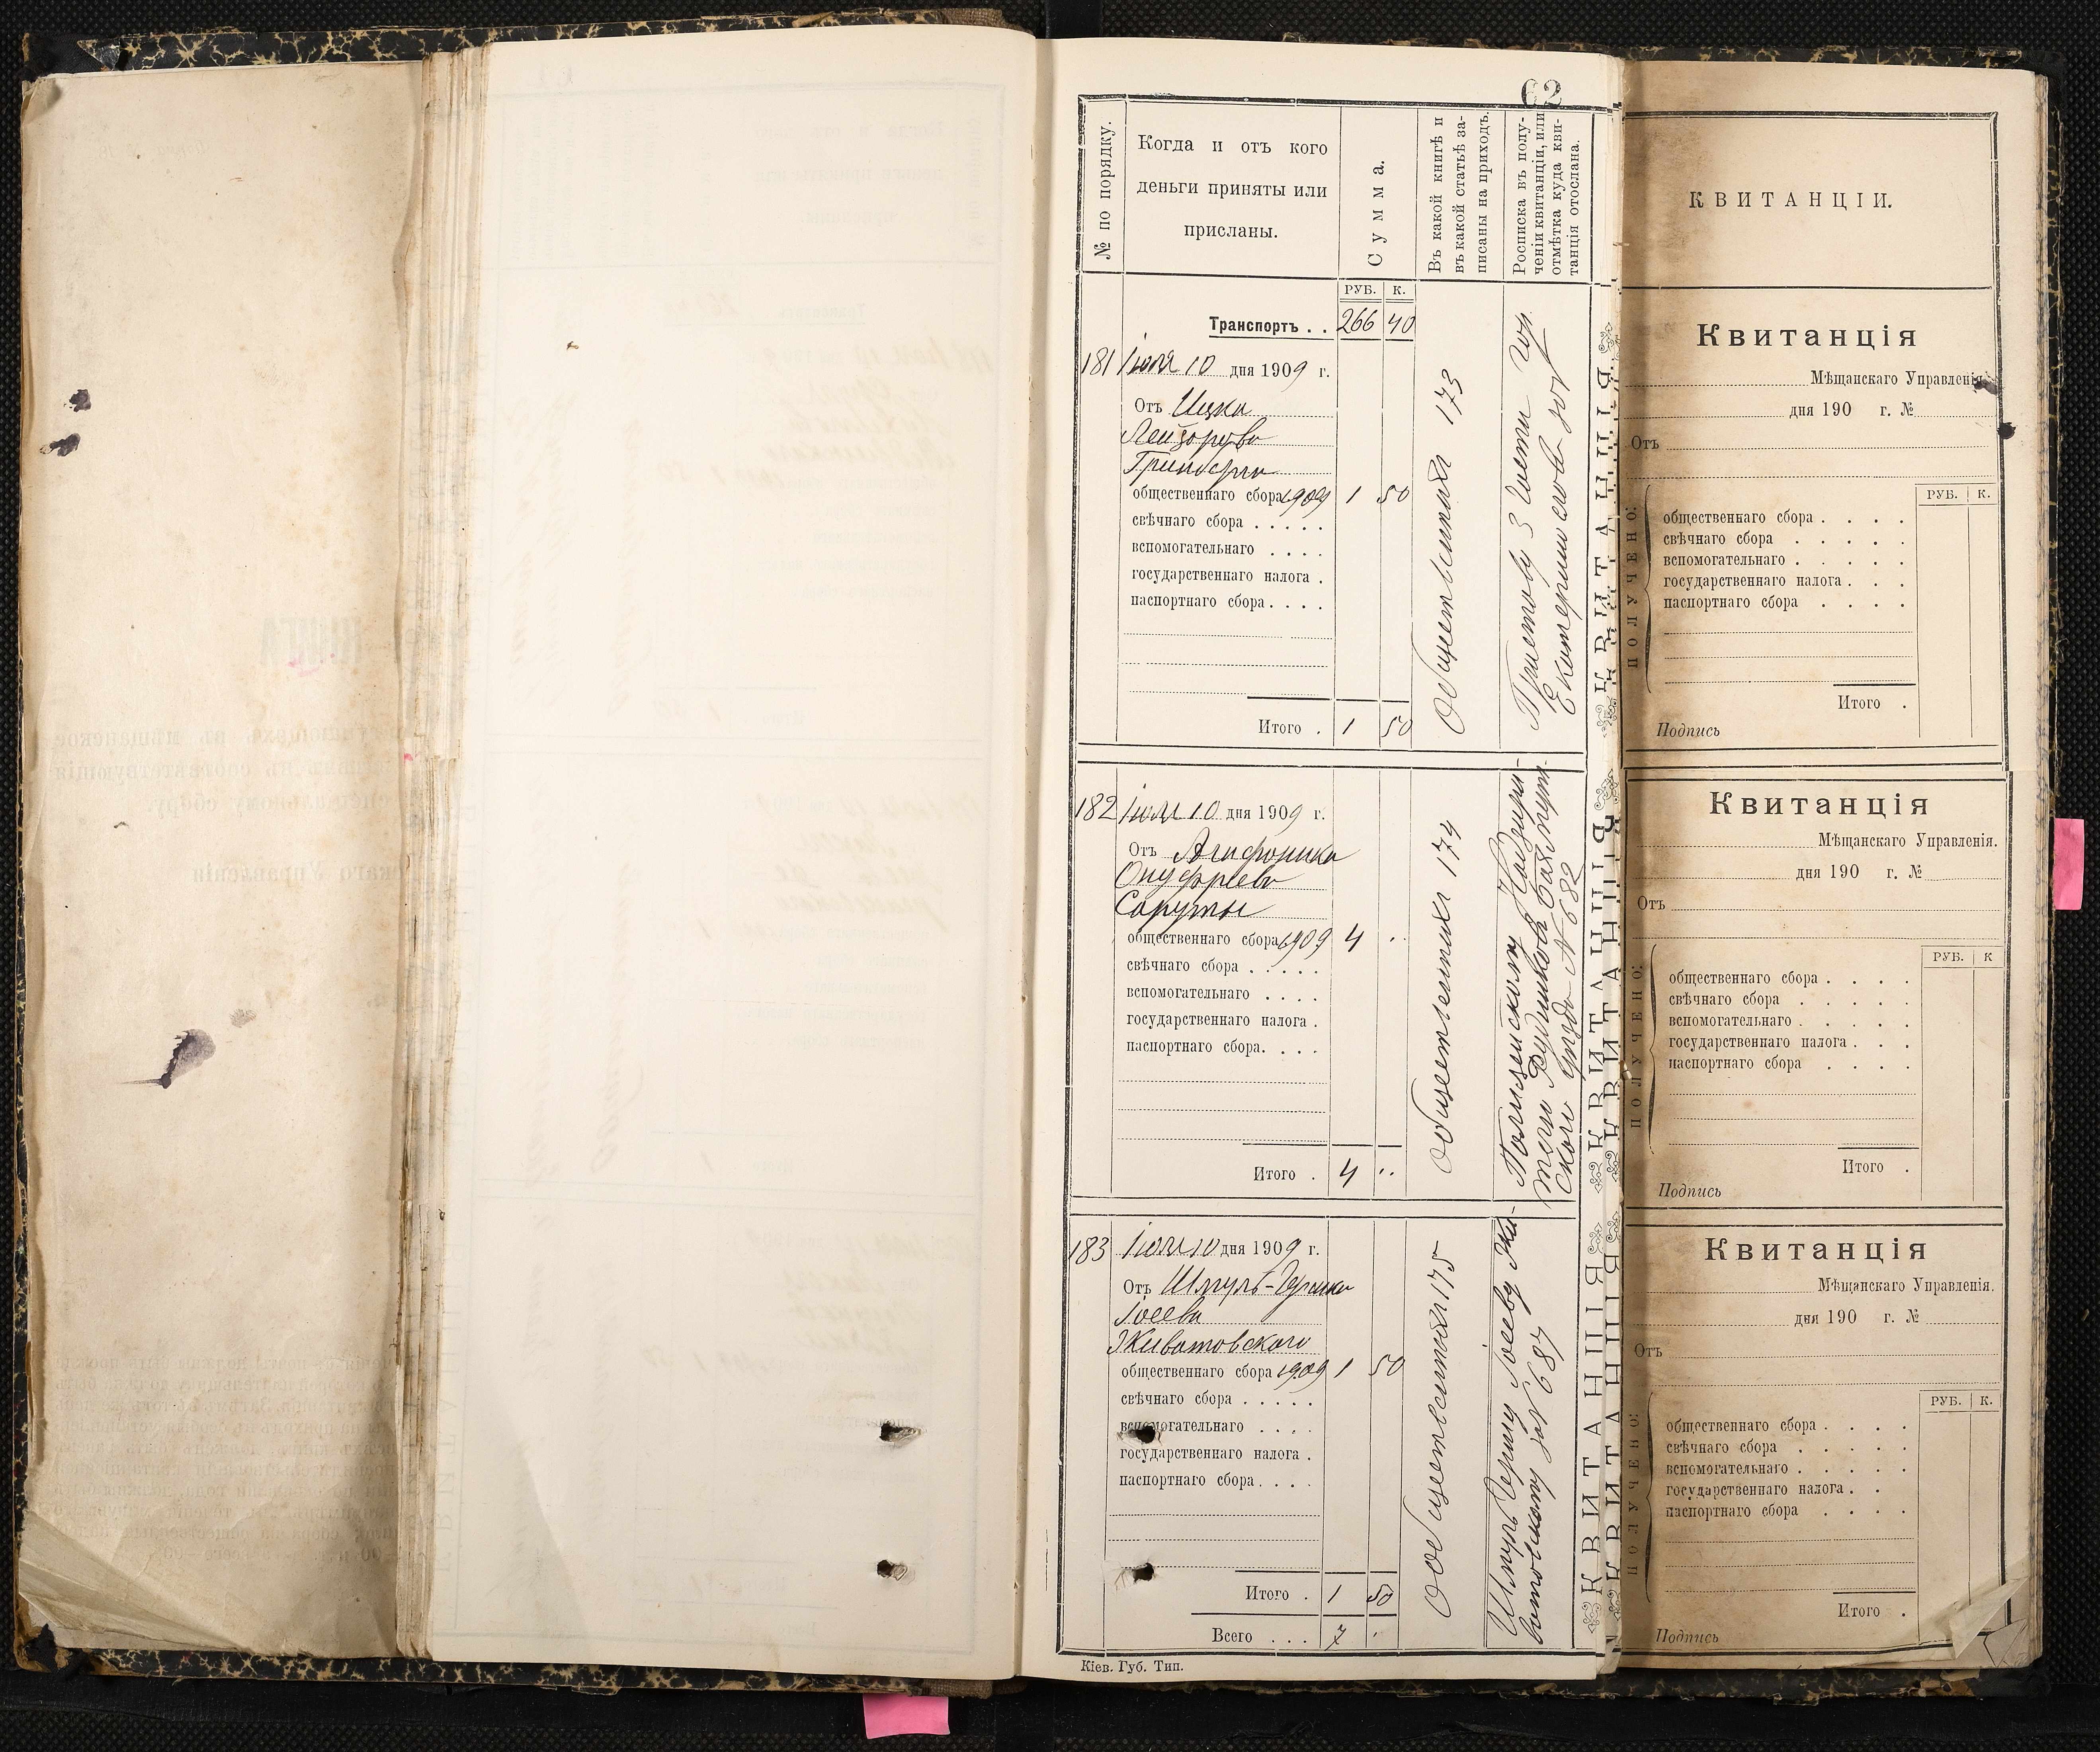 62
№ по порядку.
Когда и отъ кого
деньги приняты или
присланы.
Сумма.
Въ какой книгѣ и
въ какой статьѣ за-
писаны на приходъ.
Росписка въ полу-
ченіи квитанціи, или
отмѣтка куда кви-
танція отослана.
РУБ. К.
Транспортъ . . 266 40
181 Іюля 10 дня 1909 г.
Отъ Ицка
Лейзорова
общественнаго сбора 1909 1 50
свѣчнаго сбора . . . . .
вспомогательнаго . . . .
государственнаго налога .
паспортнаго сбора . . . .
Итого . 1 50
173
Приставу 3 части гор.
182 Іюля 10 дня 1909 г.
Отъ Агафоника
Онуфріева
общественнаго сбора 1909 4 ..
свѣчнаго сбора . . . . .
вспомогательнаго . . . .
государственнаго налога .
паспортнаго сбора. . . .
Итого . 4 ..
174
Полицейскому Надзира-
скаго уѣзда № 682
183 Іюля 10 дня 1909 г.
Отъ Шмуль-Герша
Іосева
Животовскаго
общественнаго сбора 1909 1 50
свѣчнаго сбора . . . . .
вспомогательнаго . . . .
государственнаго налога .
паспортнаго сбора . . . .
Итого . 1 50
Всего . . . 7 .
175
Шмуль Гершу Іосеву Жи-
вотовскому за № 687
Кіев. Губ. Тип.
КВИТАНЦІЯ
КВИТАНЦІЯ
КВИТАНЦІИ.
Квитанція
Мѣщанскаго Управленія.
дня 190 г. №
Отъ
ПОЛУЧЕНО:
РУБ. К.
общественнаго сбора . . . .
свѣчнаго сбора . . . . .
вспомогательнаго . . . . .
государственнаго налога . . .
паспортнаго сбора . . . .
Итого .
Подпись
Квитанція
Мѣщанскаго Управленія.
дня 190 г. №
Отъ
ПОЛУЧЕНО:
РУБ. К
общественнаго сбора . . . .
свѣчнаго сбора . . . . .
вспомогательнаго . . . . .
государственнаго налога . . .
паспортнаго сбора . . . .
Итого .
Подпись
Квитанція
Мѣщанскаго Управленія.
дня 190 г. №
Отъ
ПОЛУЧЕНО:
РУБ. К.
общественнаго сбора . . . .
свѣчнаго сбора . . . . .
вспомогательнаго . . . . .
государственнаго налога . .
паспортнаго сбора . . . .
Итого .
Подпись